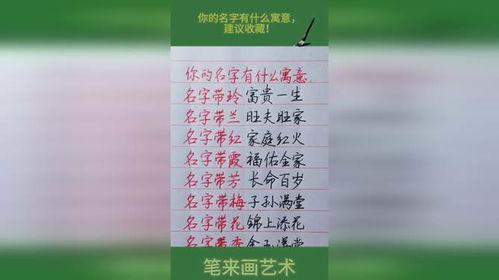 你的名字有什么寓意，
建议收藏！
你的名字有什么寓意.
名字带玲富贵一生
名字带兰旺夫旺家
名字带红家庭红火
名字带霞福佑全家
名字带芳长命百岁
名字带梅子孙满堂
名字带花锦上添花
名字带香金玉满堂
笔来画艺术